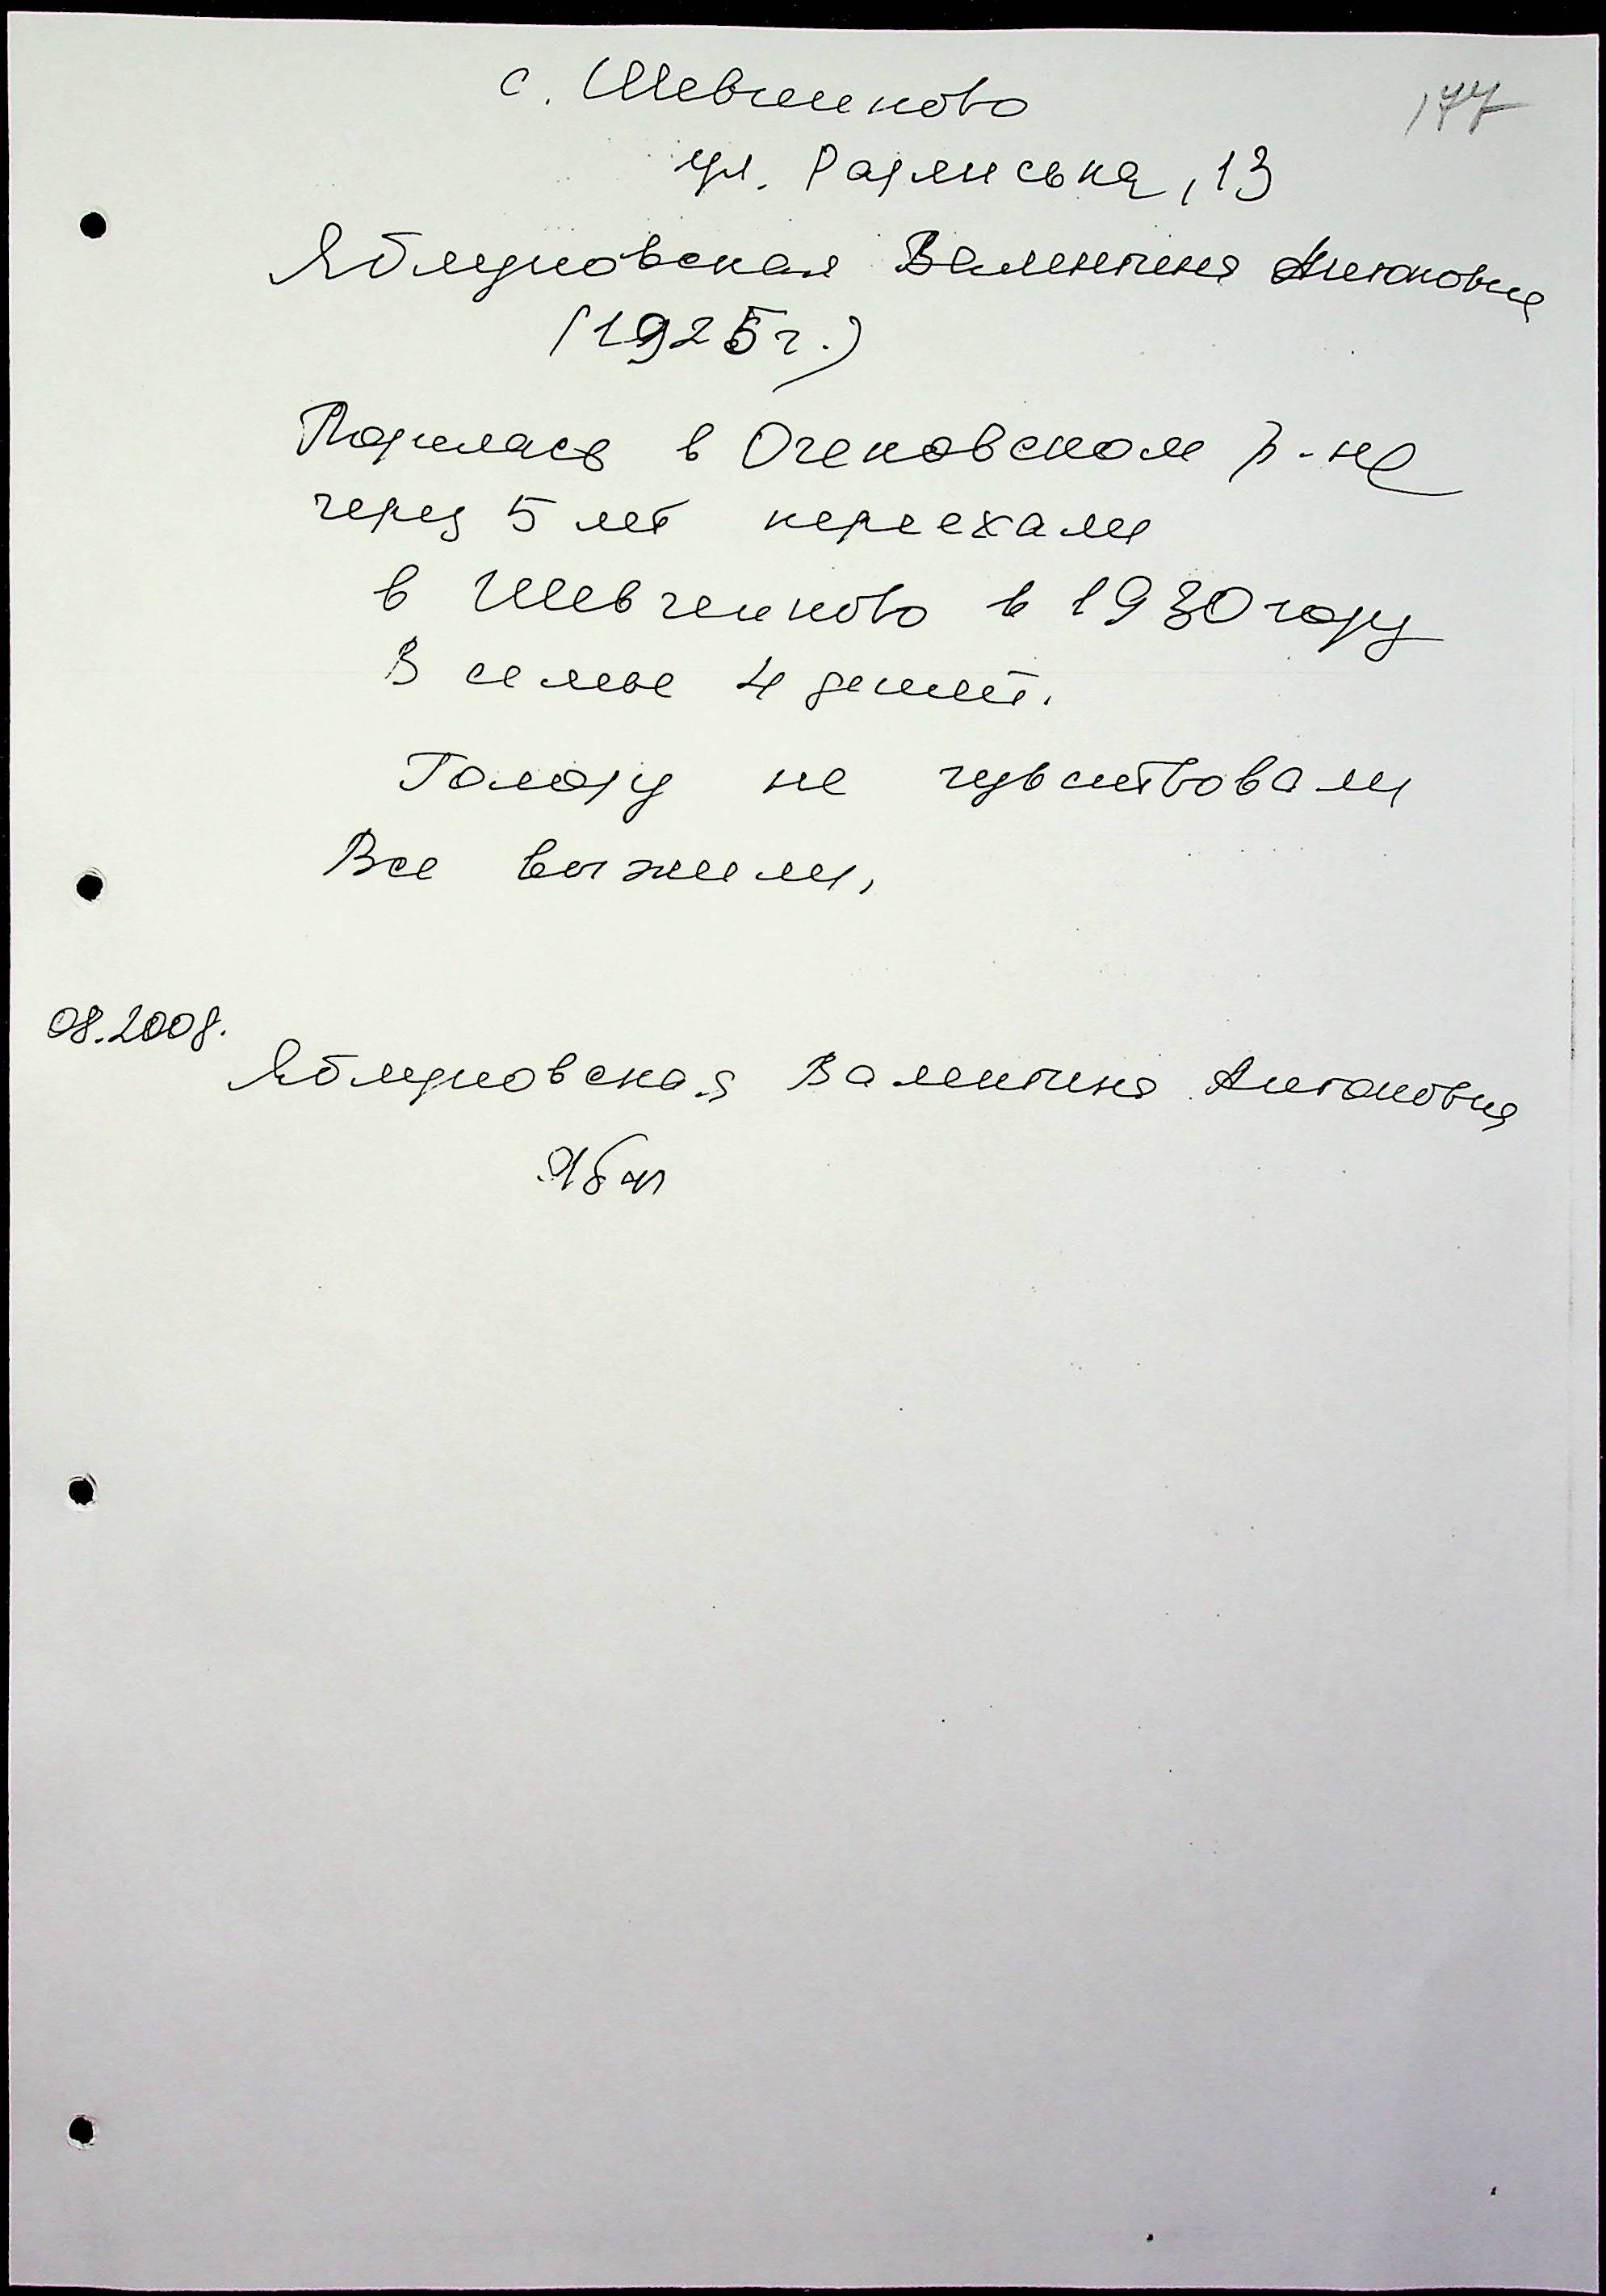 177
с. Шевченково
ул. Радянська, 13
Яблуновская Валентина Антоновна
(1925 г.)
Родилась в Очаковском р-не
через 5 лет переехали
в Шевченково в 1930 году
В семье 4 детей.
Голоду не чувствовали
Все выжили,
08.2008.
Яблуновская Валентина Антоновна
Ябл